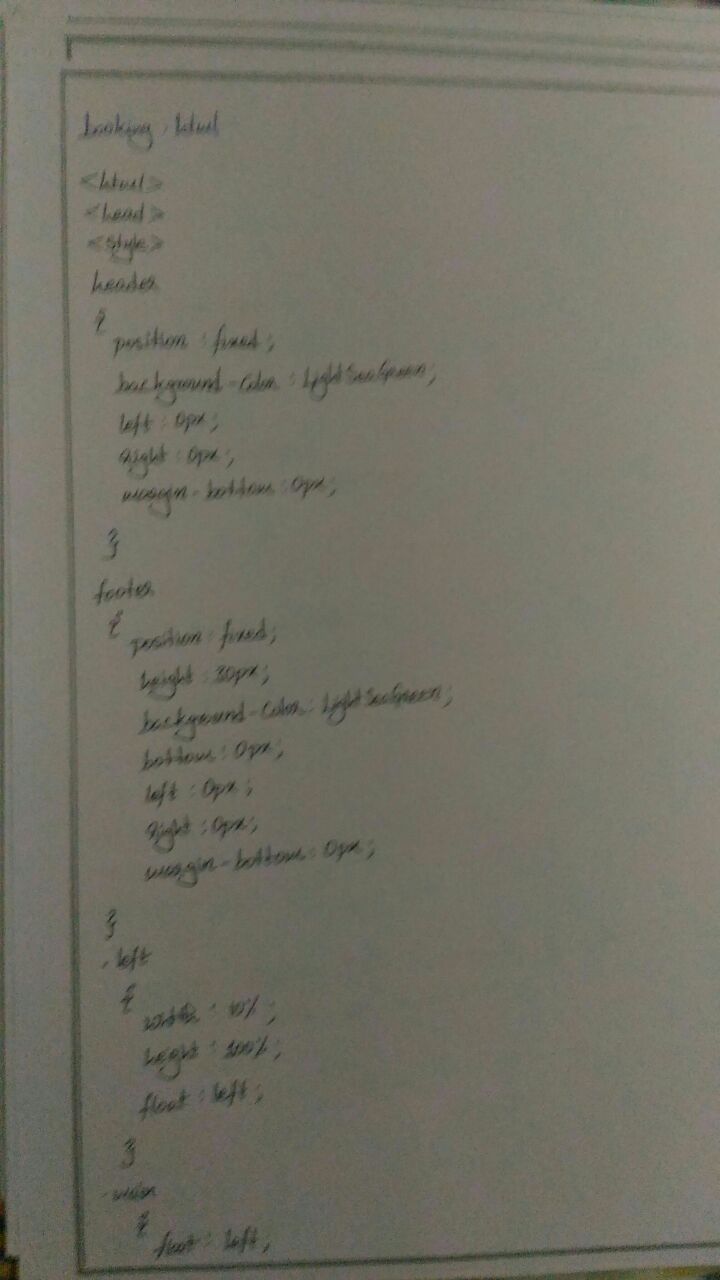 booking.html
<html>
<head>
<style>
header
{
position : fixed;
background-color : LightSeaGreen;
left : 0px;
right : 0px;
margin-bottom : 0px;
}
footer
{
position : fixed;
height : 30px;
background-color : LightSeaGreen;
bottom : 0px;
left : 0px;
right : 0px;
margin-bottom : 0px;
}
.left
{
width : 10%;
height : 100%;
float : left;
}
.main
{
float : left;